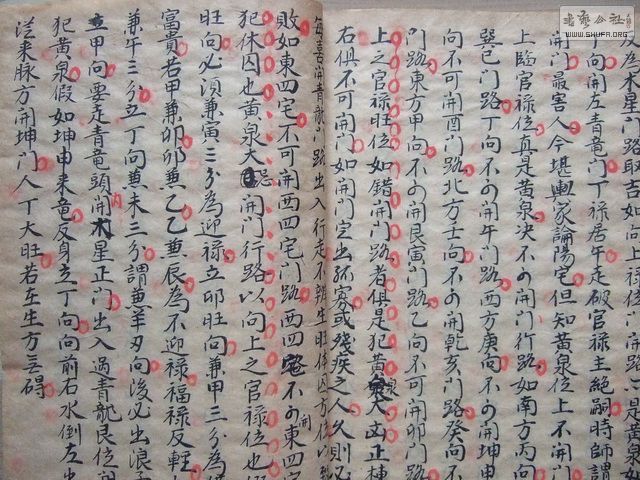 反為本星門路取吉如向上禄門
丁向開左青龍門丁禄居午走破官禄主絶嗣時師謂
開門最害人今堪輿家論陽宅但知黄泉位上不開門
上臨官禄位真是黄泉决不可開門行路如南方丙向
巽巳門路丁向不可開午門路西方庚向不可開坤申
向不可開酉門路北方壬向不可開乾亥門路癸向不
門路東方甲向不可開艮寅門路乙向不可開卯門路
上之官禄旺位如錯開門路者俱是犯黄泉大凶正棟
右俱不可開門如開門定出孤寡或殘疾之人久則必
每喜開青龍門路出入行走不辨生旺休囚方位以致
敗如東四宅不可開西四宅門路西四宅不可開東四宅
犯休囚也黄泉大忌開門行路以向上之官禄位也
旺向必須兼寅三分為迎禄立卯旺向兼甲三分為
富貴若甲兼卯卯兼乙乙兼辰為不迎禄福禄反輕
兼午三分立丁向兼未三分謂兼羊刃向後必出浪子
立甲向要走青竜頭開内木星正門出入過青龍艮位
犯黄泉假如坤申来竜反身立丁向向前右水倒左出
從来脉方開坤門人丁大旺若在生方三碍
書藝公社
WWW.SHUFA.ORG